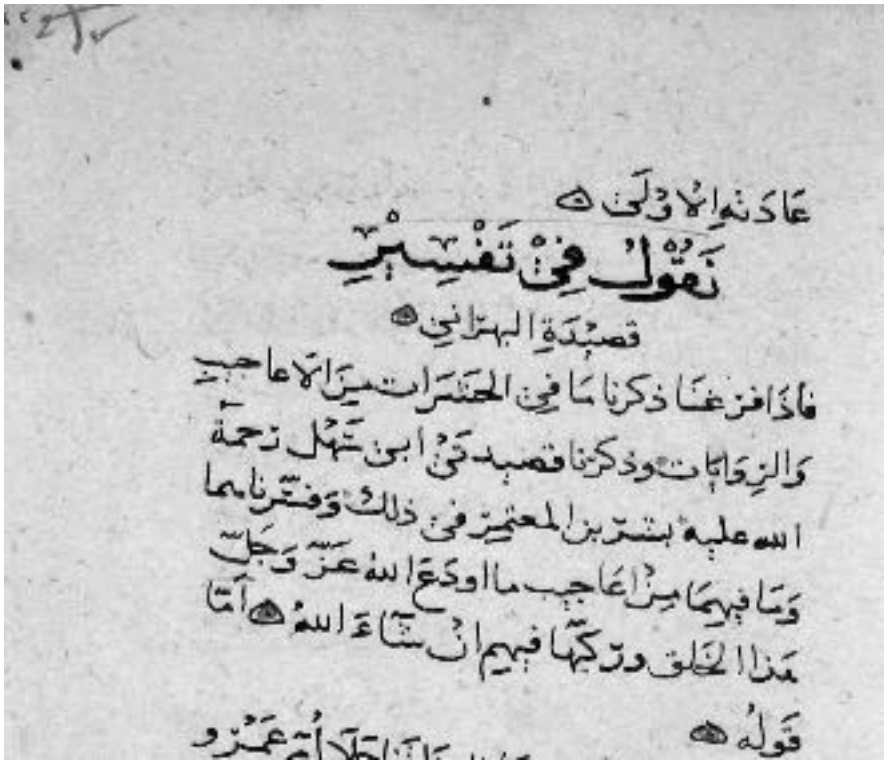 عَادَتِهِ الأُوْلَىْ
نَقُوْلُ فِيْ تَفْسِيْرِ
قَصِيْدَةِ البَهْرَانِيْ
فإذا فرغنا ذكرنا مَا فِي الحَشَرَات مِنَ الاعاجيب
وَالرِوَايات وذكرنا قصيدتَيْ ابي سَهْل رَحمة
الله عليه بشر بن المعتمِر في ذلك وَفسّرناهما
وَمَا فيهِمَا مِنْ اعَاجيب ما اودَعَ اللهُ عَزَّ وَجَلَّ
هذا الخَلق وركبَّها فيهِم انْ شَآءَ اللهُ أَمَّا
قَولُهُ
أُمّ عَمْرو